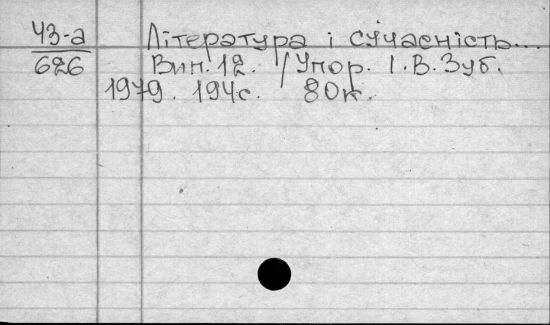 43-а Література і сучасність...
626 Вип. 12. / Упор. І.В. Зуб.
1979. 194с. 80к.